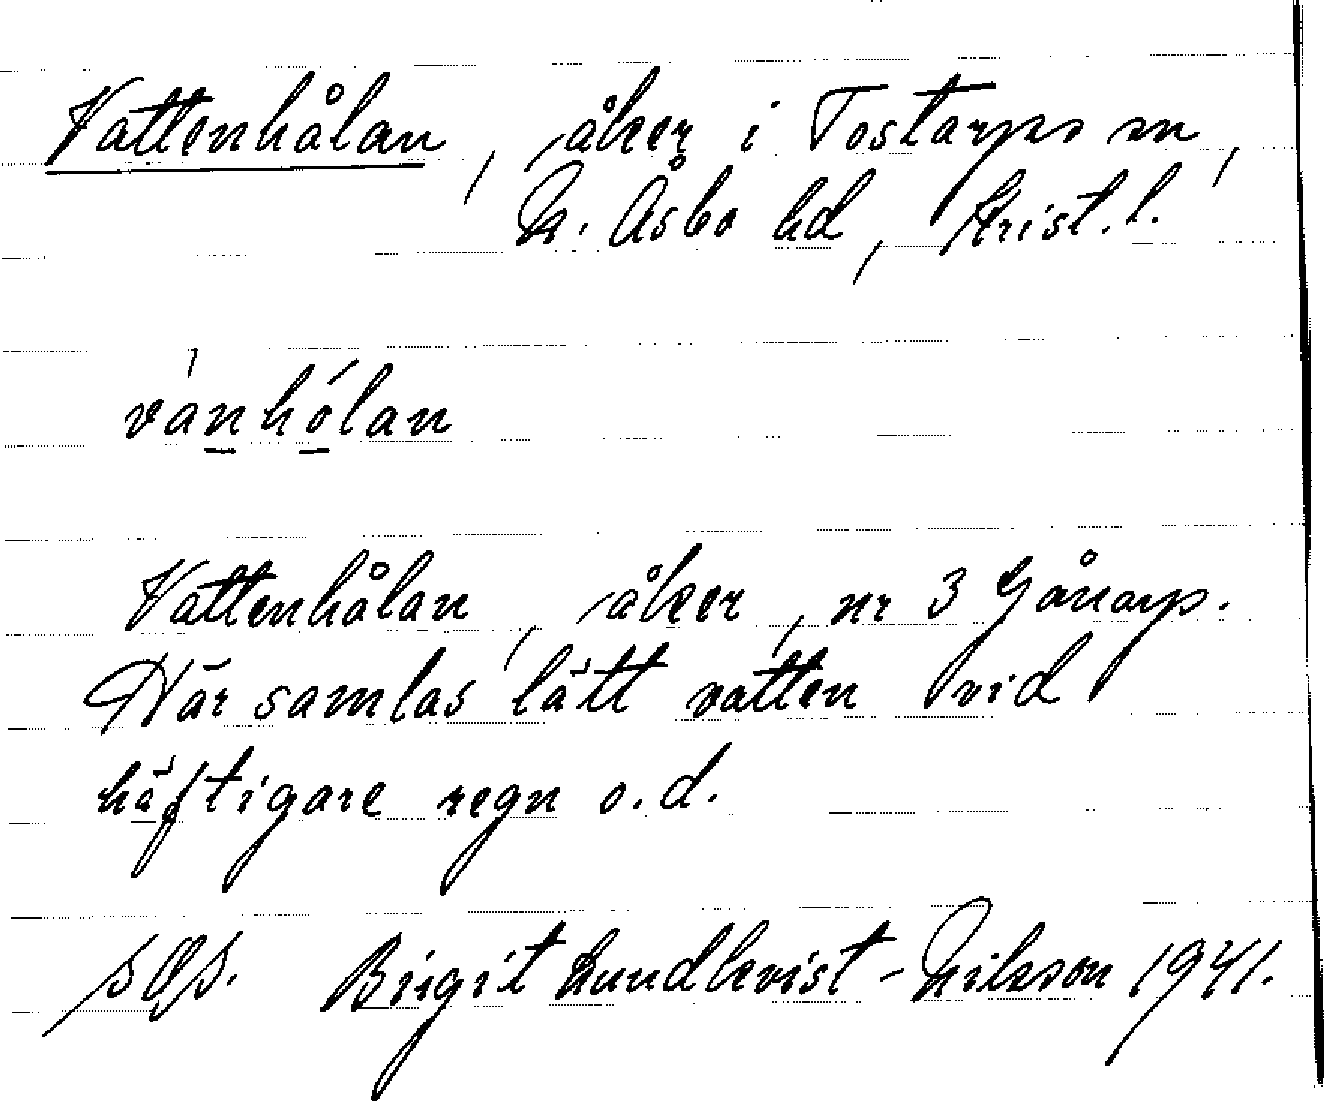 Vattenhålan, åker i Tostarps sn,
N. Åsbo hd, Krist. l.
vánhólan
Vattenhålan, åker, nr 3 Gånarp.
Här samlas lätt vatten vid
häftigare regn o.d.
Birgit Lundkvist-Nilsson 1941.